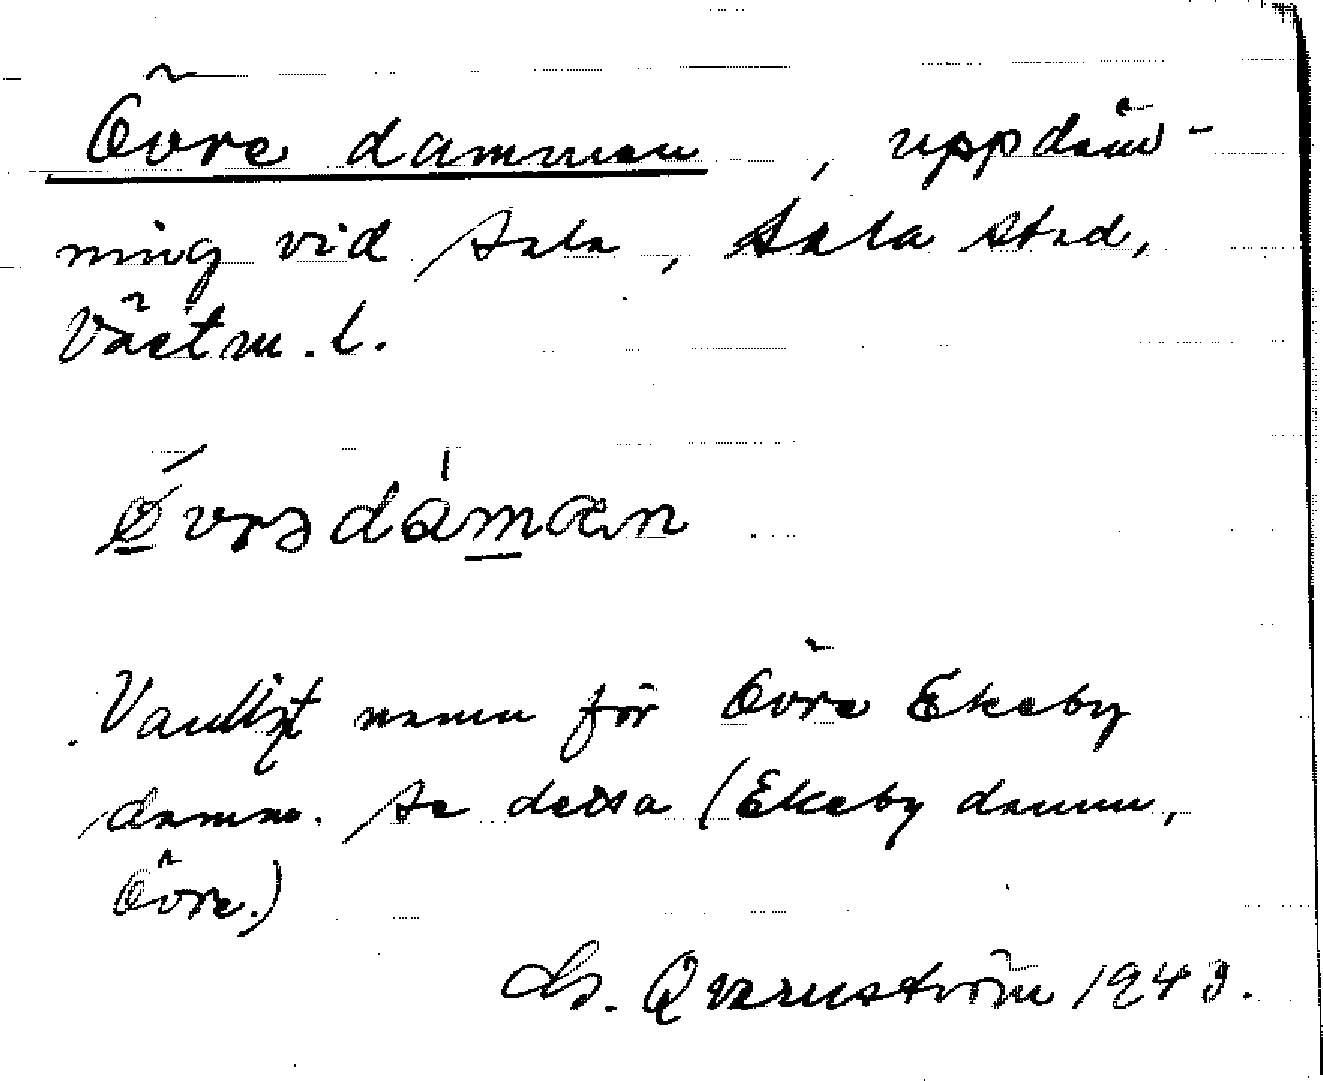 Övre dammen, uppdäm-
ning vid Sala, Sala stad,
Västm. l.
Øvrədáman
Vanligt namn för Övre Ekeby
damm. Se detta (Ekeby damm,
Övre.)
Qvarnström 1943.